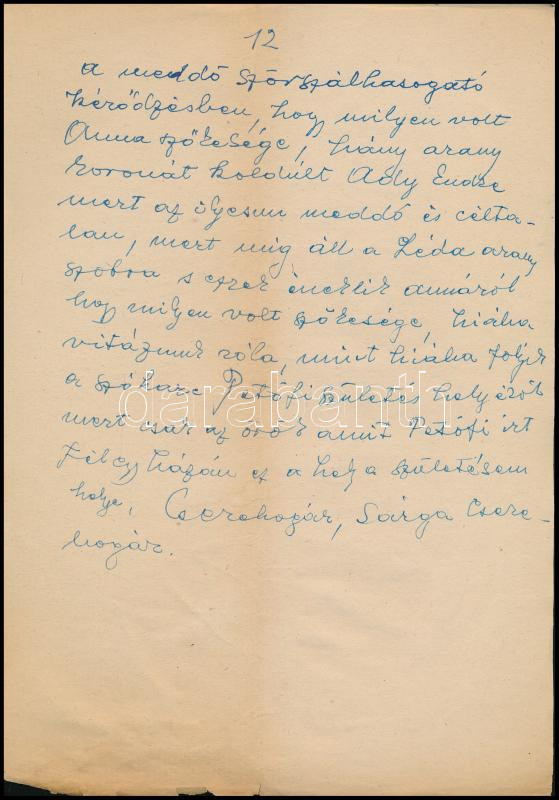 12
a meddő szőrszálhasogató
kérődzésben, hogy milyen volt
Anna szőkesége, hány arany
koronát koldúlt Ady Endre
mert az ilyesmi meddő és célta-
lan, mert míg áll a Léda arany
szobra s ezrek éneklik annáról
hogy milyen volt szőkesége, hiába
vitázunk róla, mint hiába folyik
a szóharc Petőfi születés helyéről
mert csak az örök amit Petőfi írt
Félegyházán ez a hely a születésem
helye, Cserebogár, Sárga Csere-
bogár.
darabanth